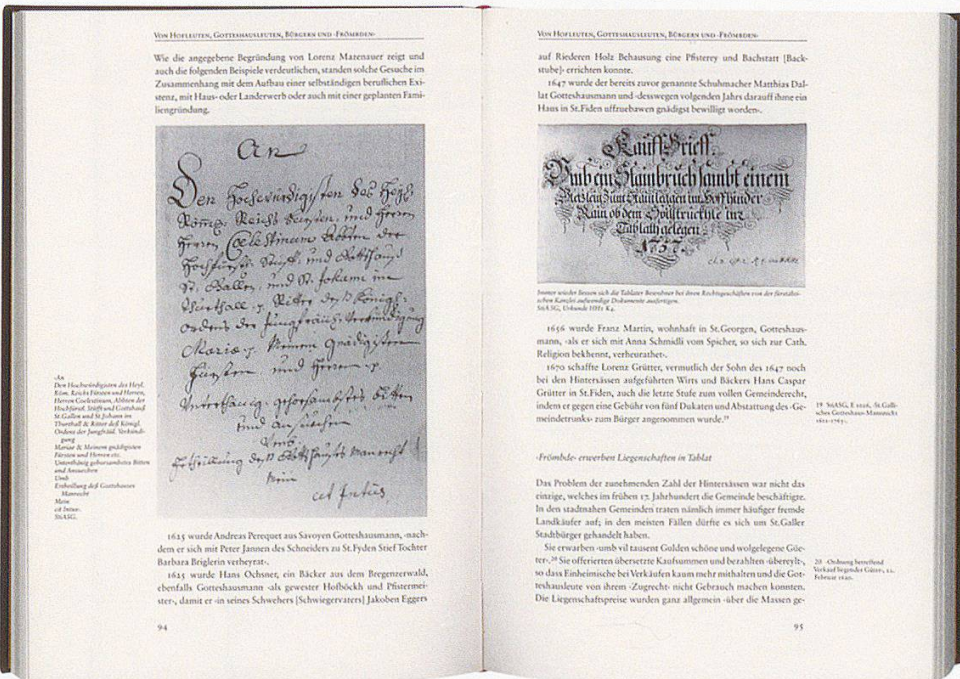 VON HOFLEUTEN, GOTTESHAUSLEUTEN, BÜRGERN UND ‹FRÖMBDEN›
Wie die angegebene Begründung von Lorenz Mazenauer zeigt und
auch die folgenden Beispiele verdeutlichen, standen solche Gesuche im
Zusammenhang mit dem Aufbau einer selbständigen beruflichen Exi-
stenz, mit Haus- oder Landerwerb oder auch mit einer geplanten Fami-
liengründung.
An
Den Hochwürdigisten des Heyl.
Röm. Reichs Fürsten und Herren,
Herren Coelestinum Abbten der
Hochfürstl. Stüfft und Gottshauß
St. Gallen, und St. Johann im
Thurthall Ritter deß Königl.
Ordens der Jungfräul. Verkündigung
Mariae Meinem gnädigisten
Fürsten und Herren
Unterthänig gehorsambstes Bitten
und Ansuechen
Umb
Ertheillung deß Gottshauses Manrecht
Mein
cit Intus.
‹An
Den Hochwürdigisten des Heyl.
Röm. Reichs Fürsten und Herren,
Herren Coelestinum, Abbten der
Hochfürstl. Stüfft und Gottshauß
St. Gallen und St. Johann im
Thurthall & Ritter deß Königl.
Ordens der Jungfräul. Verkündi-
gung
Mariae & Meinem gnädigisten
Fürsten und Herren etc.
Unterthänig gehorsambstes Bitten
und Ansuechen
Umb
Ertheillung deß Gottshauses
Manrecht
Mein
cit Intus›.
StiASG.
1625 wurde Andreas Perequet aus Savoyen Gotteshausmann, ‹nach-
dem er sich mit Peter Jannen des Schneiders zu St. Fyden Stief Tochter
Barbara Briglerin verheyrat›.
1645 wurde Hans Ochsner, ein Bäcker aus dem Bregenzerwald,
ebenfalls Gotteshausmann ‹als gewester Hofböckh und Pfistermei-
ster›, damit er ‹in seines Schwehers [Schwiegervaters] Jakoben Eggers
94
VON HOFLEUTEN, GOTTESHAUSLEUTEN, BÜRGERN UND ‹FRÖMBDEN›
auf Riederen Holz Behausung eine Pfisterey und Bachstatt [Back-
stube]› errichten konnte.
1647 wurde der bereits zuvor genannte Schuhmacher Matthias Dal-
lat Gotteshausmann und ‹desswegen volgenden Jahrs darauff ihme ein
Haus in St. Fiden uffzuebawen gnädigst bewilligt worden›.
Kauff Brieff.
Umb ein Stainbruch sambt einem
im Hoff hinder
Rain ob dem
Tablath gelegen
1757.
Immer wieder liessen sich die Tablater Bewohner bei ihren Rechtsgeschäften von der fürstäbti-
schen Kanzlei aufwendige Dokumente ausfertigen.
StiASG, Urkunde HH1 K4.
1656 wurde Franz Martin, wohnhaft in St. Georgen, Gotteshaus-
mann, ‹als er sich mit Anna Schmidli vom Spicher, so sich zur Cath.
Religion bekhennt, verheurathet›.
1670 schaffte Lorenz Grütter, vermutlich der Sohn des 1647 noch
bei den Hintersässen aufgeführten Wirts und Bäckers Hans Caspar
Grütter in St. Fiden, auch die letzte Stufe zum vollen Gemeinderecht,
indem er gegen eine Gebühr von fünf Dukaten und Abstattung des ‹Ge-
meindetrunks› zum Bürger angenommen wurde.19
19 StiASG, E 1026, ‹St. Galli-
sches Gotteshaus-Mannrecht
1621-1765›.
‹Frömbde› erwerben Liegenschaften in Tablat
Das Problem der zunehmenden Zahl der Hintersässen war nicht das
einzige, welches im frühen 17. Jahrhundert die Gemeinde beschäftigte.
In den stadtnahen Gemeinden traten nämlich immer häufiger fremde
Landkäufer auf; in den meisten Fällen dürfte es sich um St. Galler
Stadtbürger gehandelt haben.
Sie erwarben ‹umb vil tausent Gulden schöne und wolgelegene Güe-
ter›.20 Sie offerierten übersetzte Kaufsummen und bezahlten ‹übereylt›,
so dass Einheimische bei Verkäufen kaum mehr mithalten und die Got-
teshausleute von ihrem ‹Zugrecht› nicht Gebrauch machen konnten.
Die Liegenschaftspreise wurden ganz allgemein ‹über die Massen ge-
20 ‹Ordnung betreffend
Verkauf liegender Güter›, 12.
Februar 1620.
95